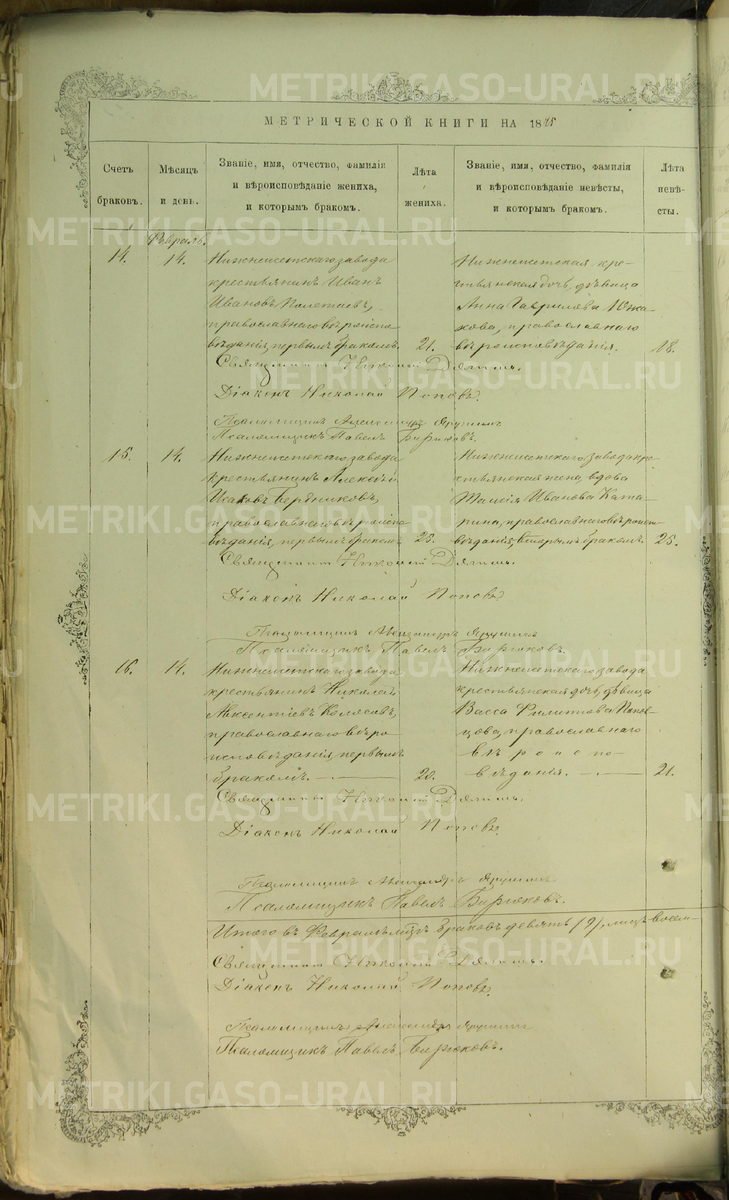 METRIKI.GASO-URAL.RU
МЕТРИЧЕСКОЙ КНИГИ НА 18
Счетъ браковъ.
Мѣсяцъ и день.
Званіе, имя, отчество, фамилія
и вѣроисповѣданіе жениха,
и которымъ бракомъ.
Лѣта
жениха.
Званіе, имя, отчество, фамилія
и вѣроисповѣданіе невѣсты,
и которымъ бракомъ.
Лѣта
невѣ-
сты.
Февраль.
14.
14.
Нижнеисетскаго завода
крестьянинъ Иванъ
Ивановъ Полетаевъ,
православнаго вѣроиспо-
вѣданія, первымъ бракомъ.
21.
Нижнеисетская кре-
стьянская дочь, дѣвица
Анна Гаврилова Южа-
кова, православнаго
вѣроисповѣданія.
18.
Священникъ
Діаконъ Николай Поповъ.
Псаломщикъ Александръ
Псаломщикъ Павелъ Бирюковъ.
15.
14.
Нижнеисетскаго завода
крестьянинъ Алексѣй
Исаковъ Бердниковъ,
православнаго вѣроиспо-
вѣданія, первымъ бракомъ
23.
Нижнеисетскаго завода кре-
стьянская жена, вдова
Ивановна Ката-
рина, православнаго вѣроиспо-
вѣданія, вторымъ бракомъ.
25.
Священникъ
Діаконъ Николай Поповъ
Псаломщикъ Александръ
Псаломщикъ Павелъ Бирюковъ.
16.
14.
Нижнеисетскаго завода
крестьянинъ Николай
Авксентіевъ Колясовъ,
православнаго вѣро-
исповѣданія, первымъ
бракомъ.
20.
Нижнеисетскаго завода
крестьянская дочь, дѣвица
Васса Филиппова
православнаго
вѣроиспо-
вѣданія.
21.
Священникъ
Діаконъ Николай Поповъ
Псаломщикъ Александръ
Псаломщикъ Павелъ Бирюковъ.
Итого въ Февралѣ мцѣ браковъ девять /9/, лицъ восем-
Священникъ
Діаконъ Николай Поповъ.
Псаломщикъ Александръ
Псаломщикъ Павелъ Бирюковъ.